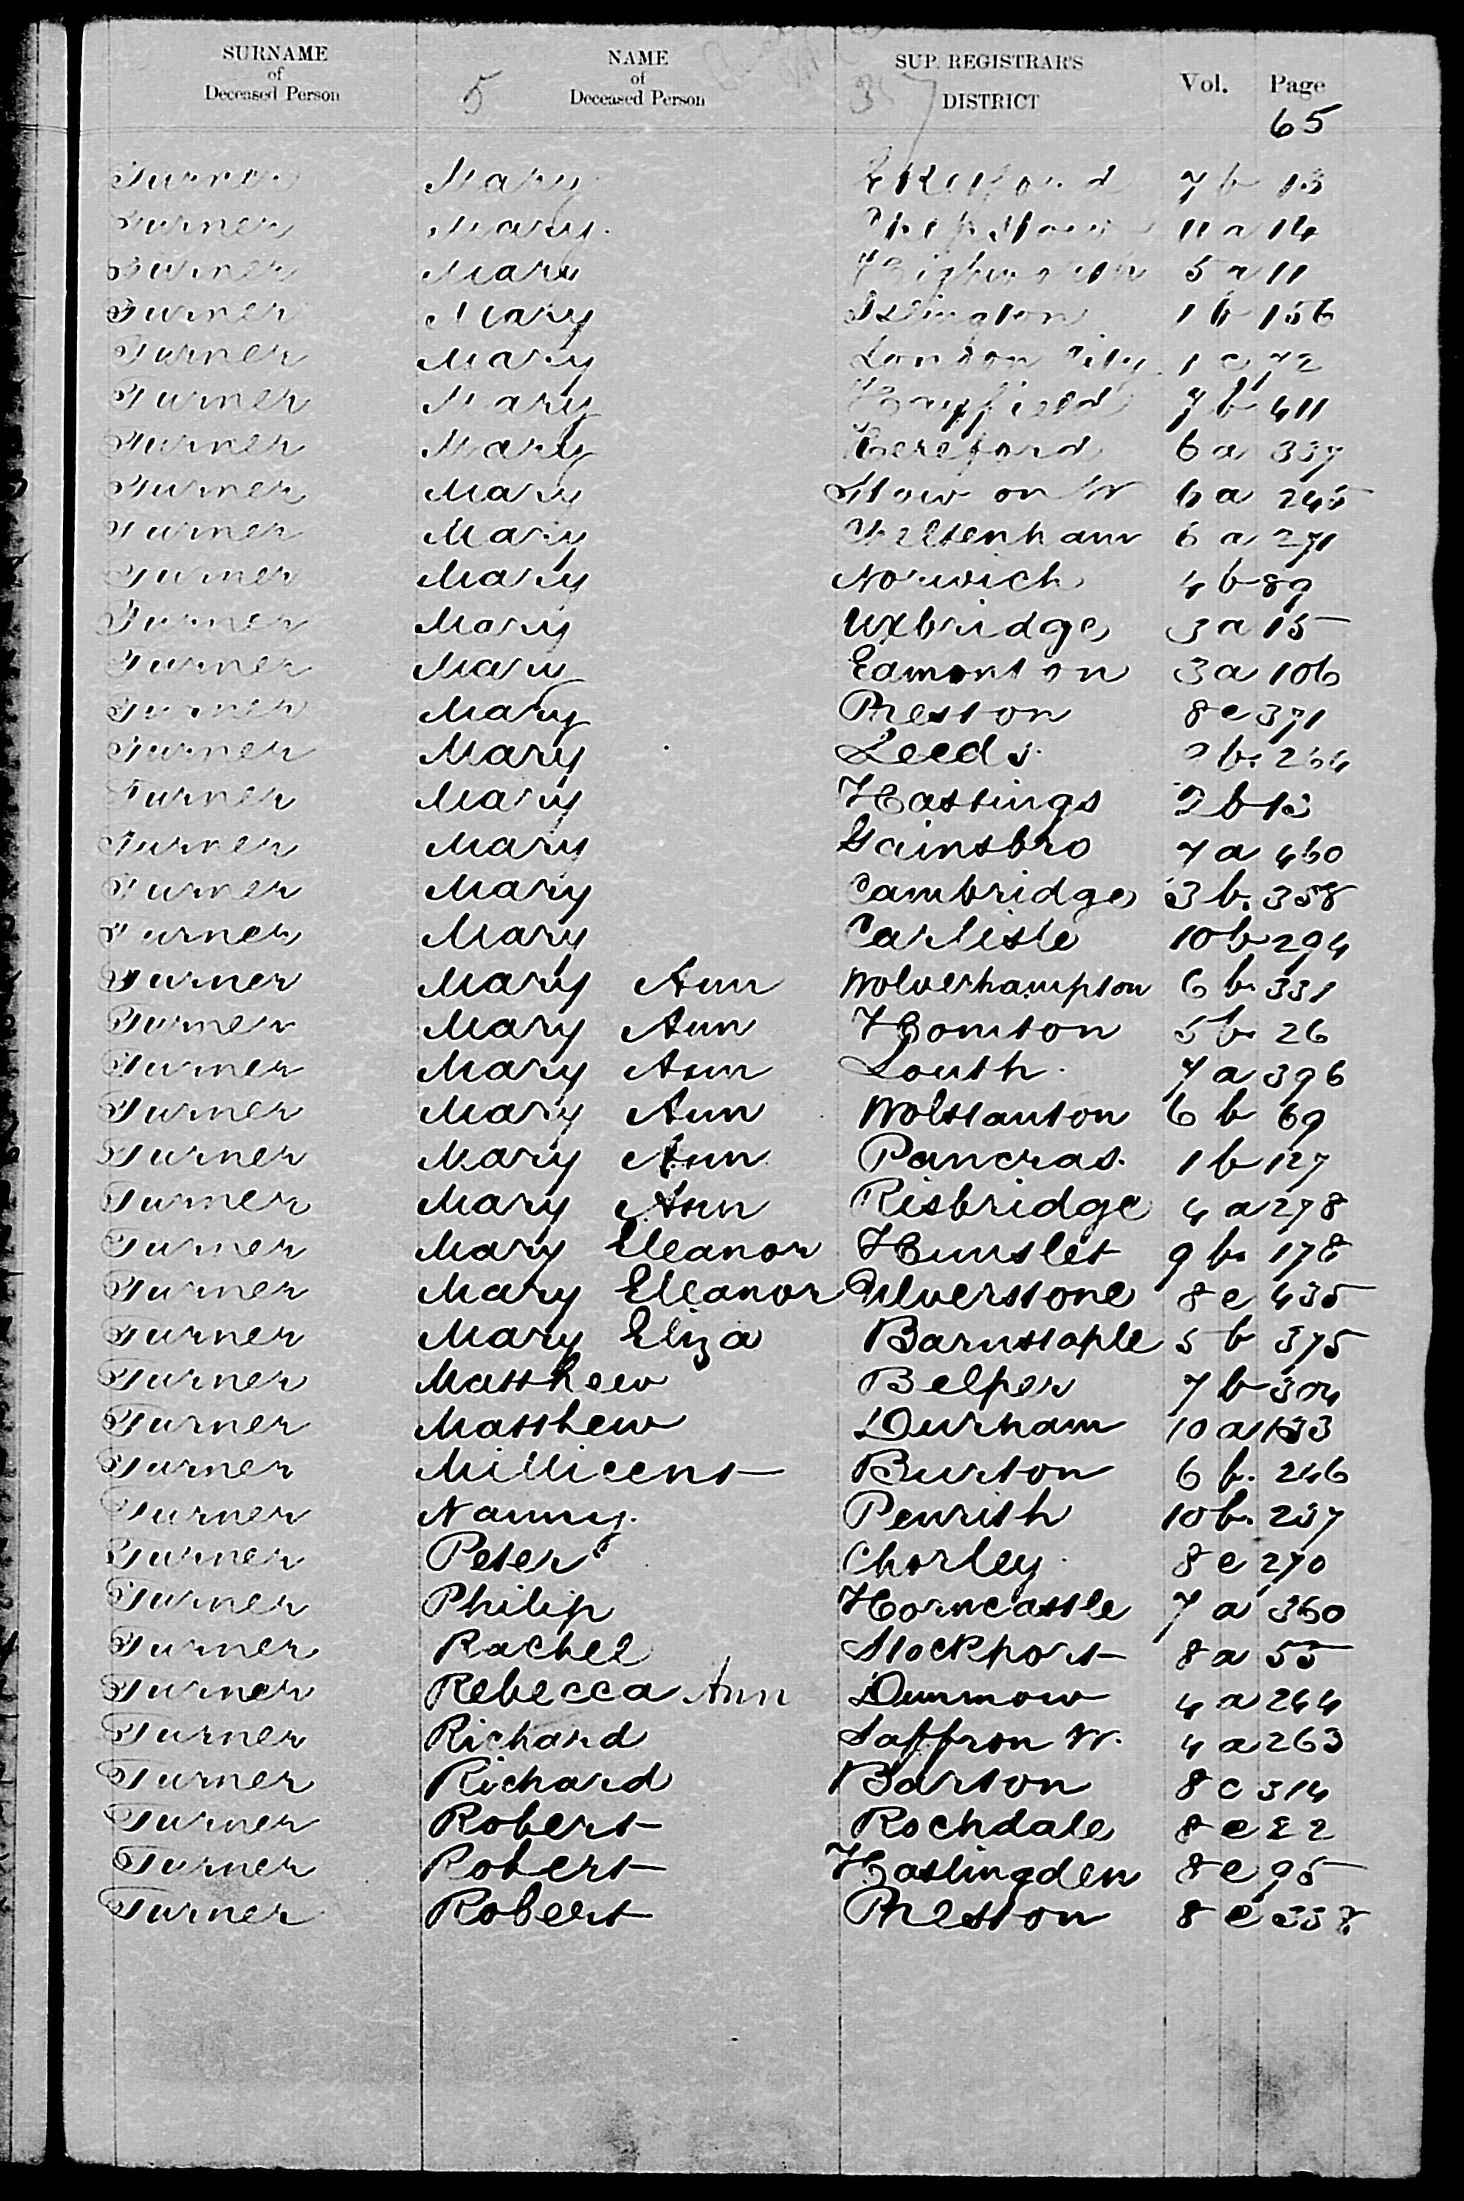 SURNAME of Deceased Person
NAME of Deceased Person
SUP. REGISTRAR'S DISTRICT
Vol. Page
5 65
Turner Mary E Retford 7 b 13
Turner Mary Chepstow 11 a 14
Turner Mary Highworth 5 a 11
Turner Mary Islington 1 b 156
Turner Mary London City 1 c 72
Turner Mary Hayfield 7 b 411
Turner Mary Hereford 6 a 337
Turner Mary Stow on W 6 a 245
Turner Mary Cheltenham 6 a 271
Turner Mary Norwich 4 b 89
Turner Mary Uxbridge 3 a 15
Turner Mary Edmonton 3 a 106
Turner Mary Preston 8 e 371
Turner Mary Leeds 9 b. 264
Turner Mary Hastings 2 b 13
Turner Mary Gainsbro 7 a 460
Turner Mary Cambridge 3 b. 358
Turner Mary Carlisle 10 b 294
Turner Mary Ann Wolverhampton 6 b. 331
Turner Mary Ann Honiton 5 b. 26
Turner Mary Ann Louth 7 a 396
Turner Mary Ann Wolstanton 6 b 69
Turner Mary Ann Pancras. 1 b 127
Turner Mary Ann Risbridge 4 a 278
Turner Mary Eleanor Hunslet 9 b. 178
Turner Mary Eleanor Ulverstone 8 e 435
Turner Mary Eliza Barnstaple 5 b 375
Turner Matthew Belper 7 b 304
Turner Matthew Durham 10 a
Turner Millicent Burton 6 b. 246
Turner Nanny. Penrith 10 b. 237
Turner Peter Chorley 8 e 270
Turner Philip Horncastle 7 a 360
Turner Rachel Stockport 8 a 55
Turner Rebecca Ann Dunmow 4 a 264
Turner Richard Saffron W. 4 a 263
Turner Richard Barton 8 c 314
Turner Robert Rochdale 8 e 22
Turner Robert Haslingden 8 e 95
Turner Robert Preston 8 e 338